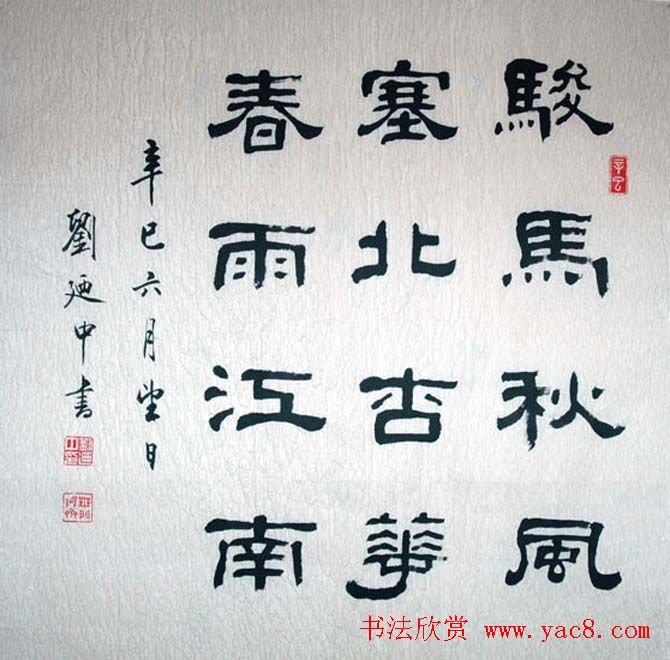 駿馬秋風
塞北杏華
春雨江南
辛巳六月望日
劉迺中書
辛巳
书法欣赏 www.yac8.com